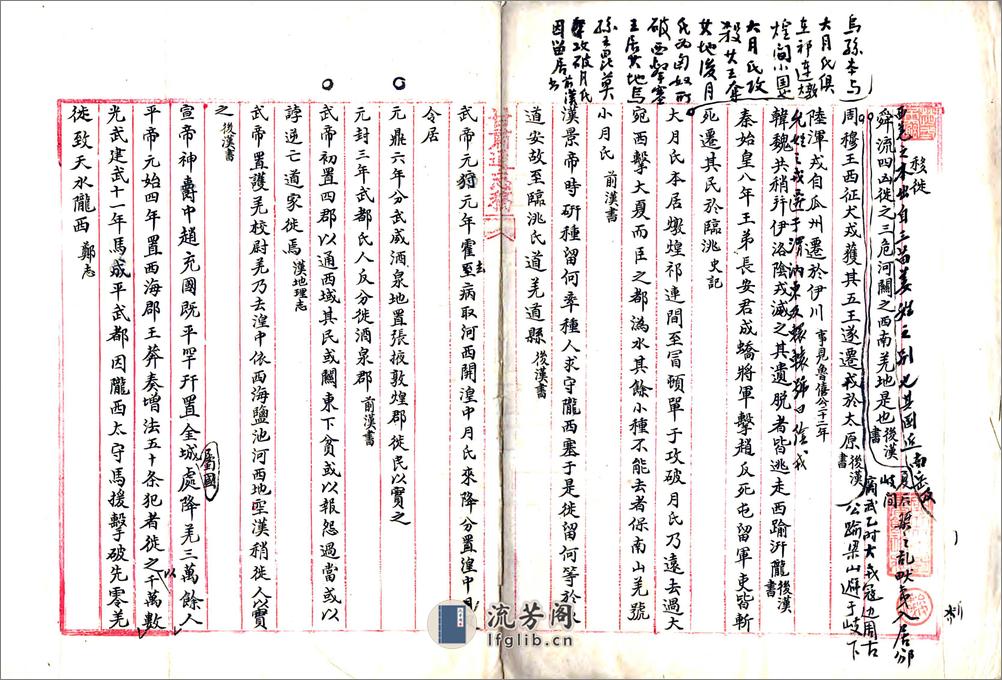 移徙
西羌之本出自三苗姜姓之別也其國近南岳及
舜流四凶徙之三危河關之西南羌地是也後漢書
夏后氏之乱畎夷人居邠岐間
周穆王西征犬戎獲其五王遂遷戎於太原後漢書
武乙时犬戎寇边周古公踰梁山避于岐下
陸渾戎自瓜州遷於伊川事見魯僖公二十二年
允姓之戎遷于渭汭東及轘轅號曰陰戎
韓魏共稍并伊洛陰戎滅之其遺脫者皆逃走西踰汧隴後漢書
秦始皇八年王弟長安君成蟜將軍擊趙反死屯留軍吏皆斬
死遷其民於臨洮史記
烏孫本与
大月氏俱
在祁連燉
煌间小国
大月氏攻
殺其王奪
其地後月
氏为匈奴所
破西擊塞
王居其地烏
孫王昆莫
擊攻破月氏
因留居前漢
大月氏本居燉煌祁連間至冒頓單于攻破月氏乃遠去過大
宛西擊大夏而臣之都媯水其餘小種不能去者保南山羌號
小月氏前漢書
漢景帝時研種留何率種人求守隴西塞于是徙留何等於狄
道安故至臨洮氐道羌道縣後漢書
甘肅通志稿
武帝元狩元年霍去病取河西開湟中月氏來降分置湟中及
令居
元鼎六年分武威酒泉地置張掖敦煌郡徙民以實之
元封三年武都氐人反分徙酒泉郡前漢書
武帝初置四郡以通西域其民或關東下貧或以報怨過當或以
誖逆亡道家徙焉漢地理志
武帝置護羌校尉羌乃去湟中依西海鹽池河西地空漢稍徙人以實
之後漢書
宣帝神爵中趙充國既平罕幵置金城屬國處降羌三萬餘人
平帝元始四年置西海郡王莽奏增法五十條犯者徙之以千萬數
光武建武十一年馬成平武都因隴西太守馬援擊破先零羌
徙致天水隴西鄭志
流芳阁
lfglib.cn